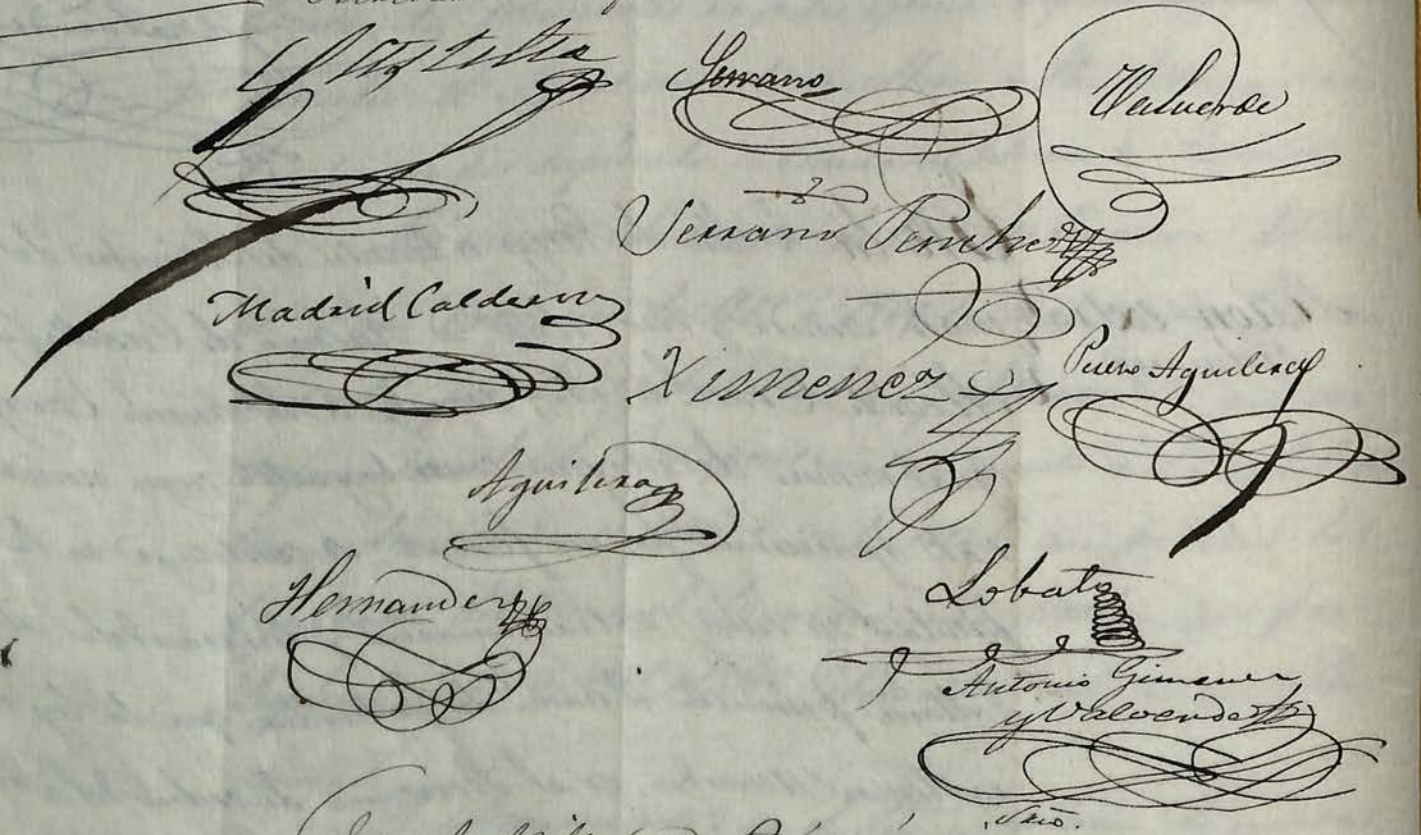 Castilla
Serrano
Valverde
Serrano Penche
Madrid Calderon
Ximenez
Puerto Aguilera
Aguilera
Hernandez
Lobato
Antonio Gimenez
y Valverde
Srio.